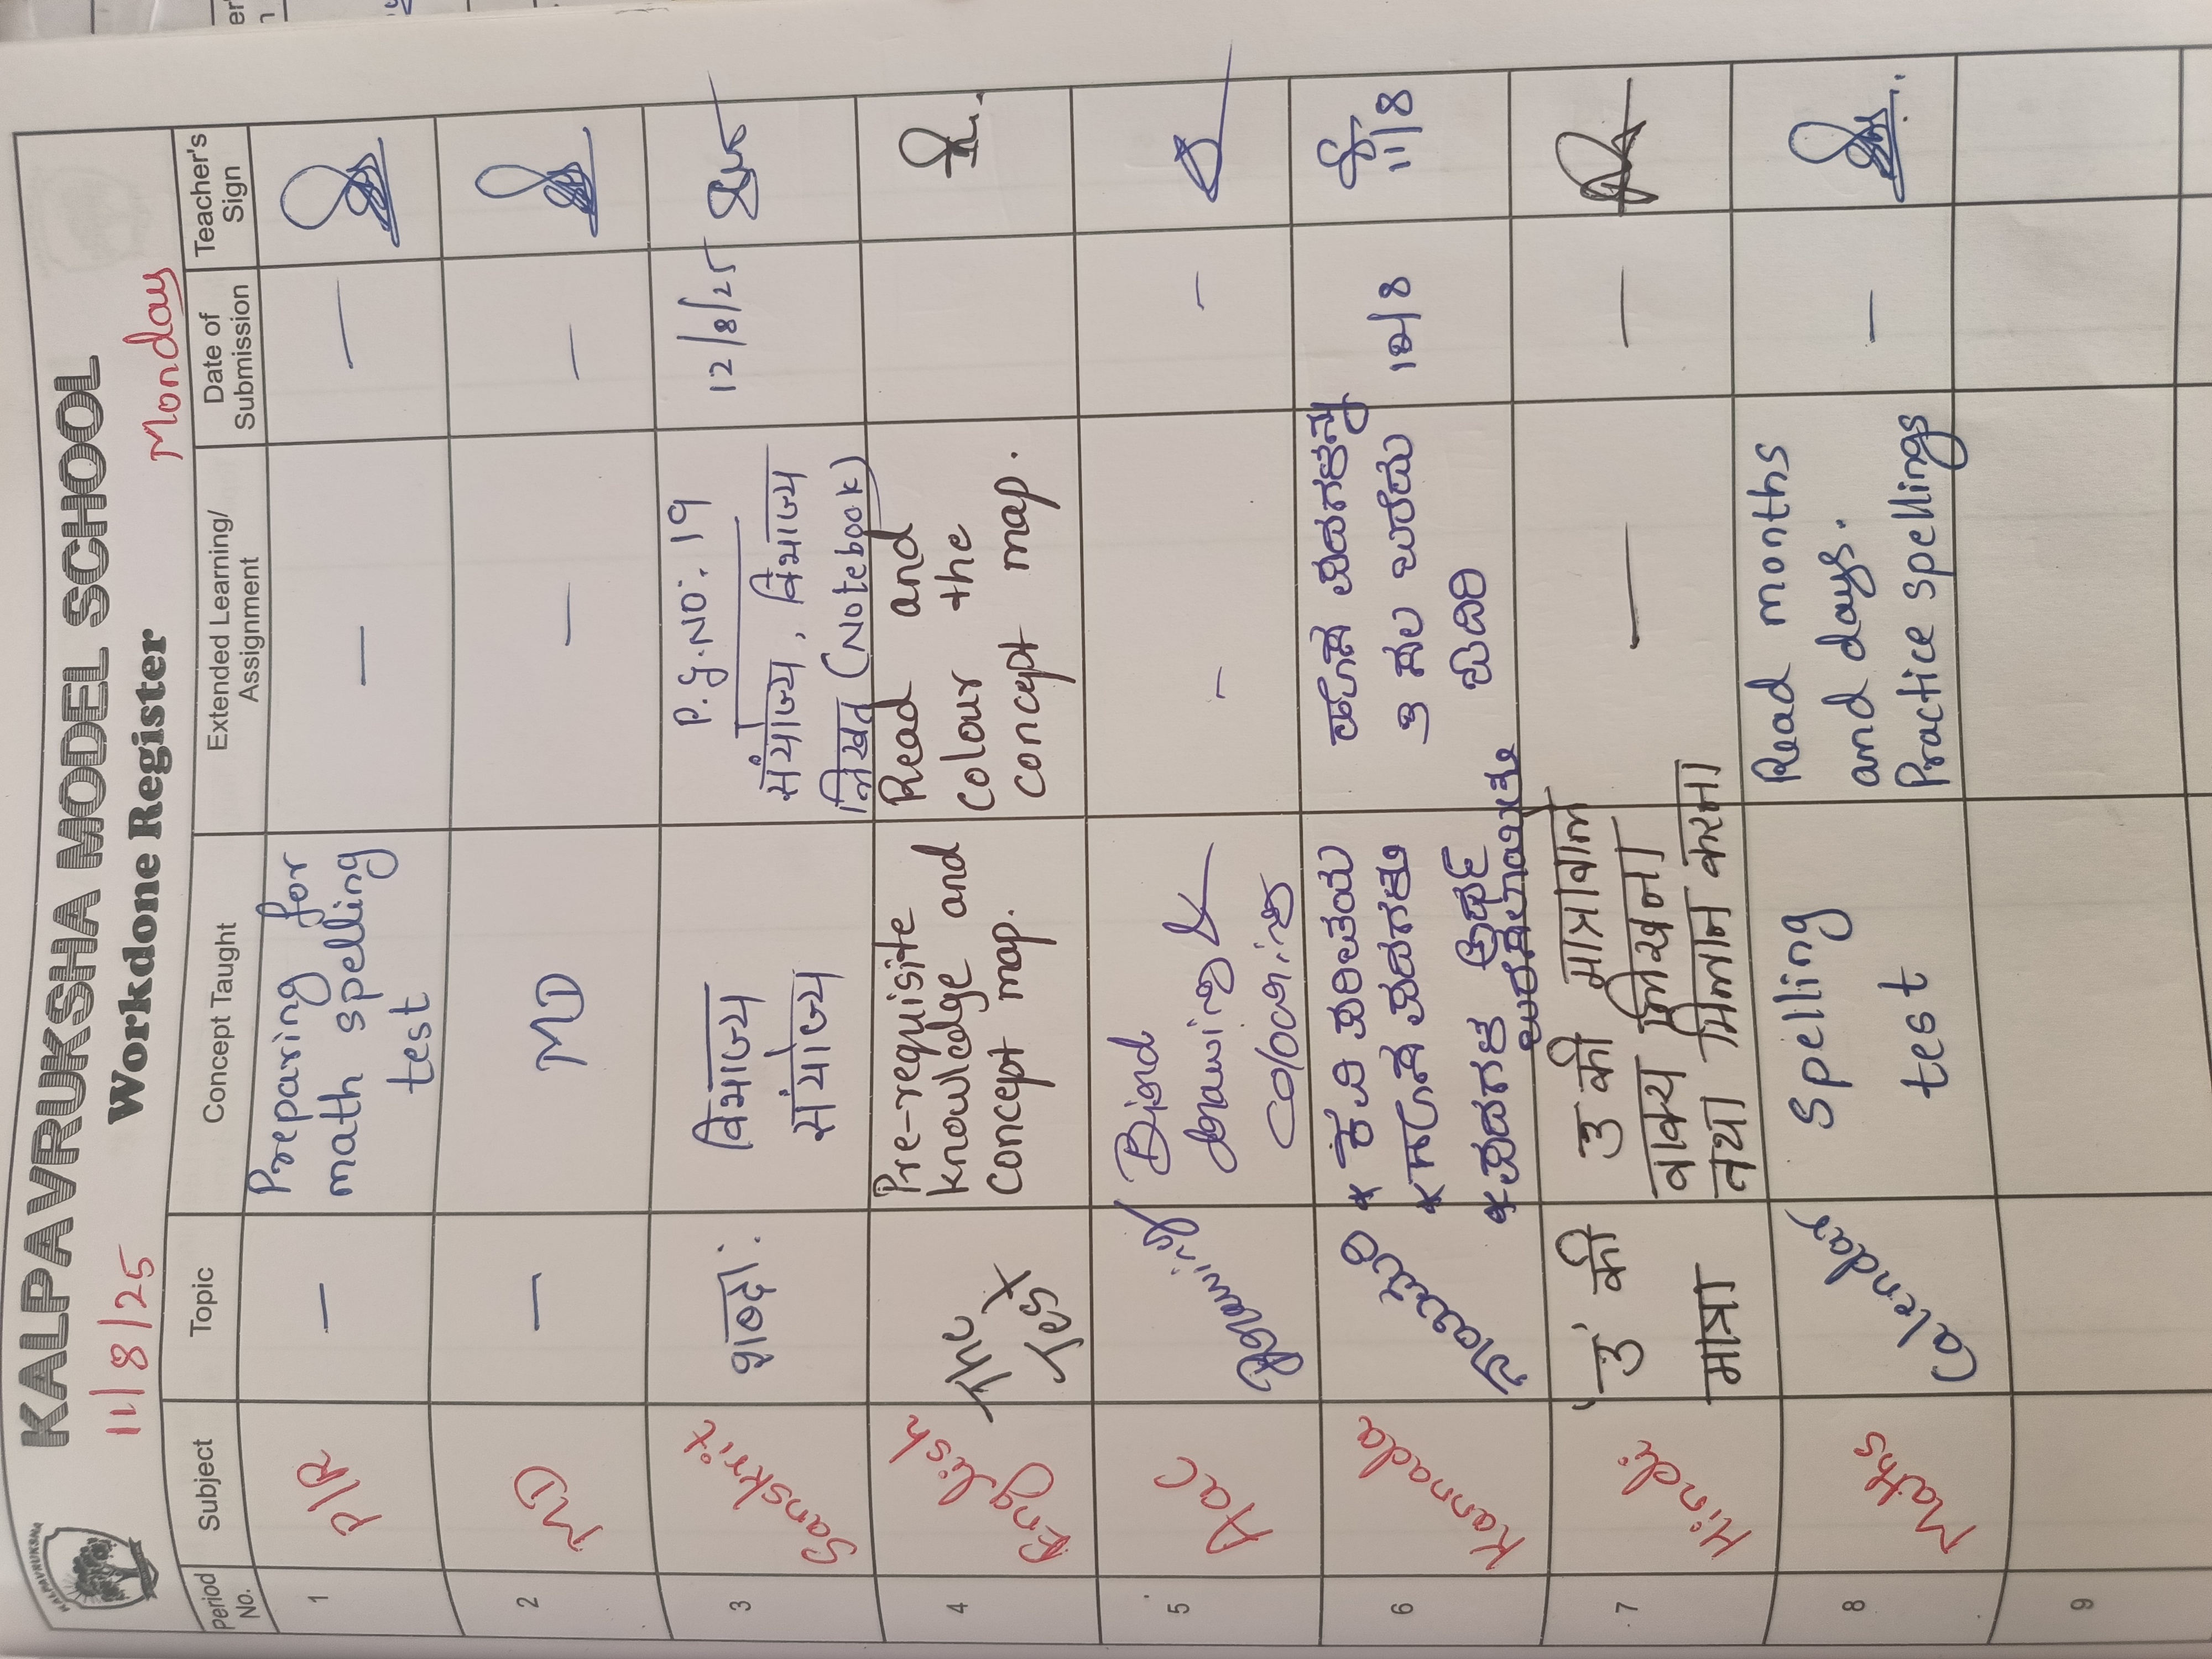 KALPAVRUKSHA
KALPAVRUKSHA MODEL SCHOOL
11/8/25 Workdone Register Monday
Period No. Subject Topic Concept Taught Extended Learning/ Assignment Date of Submission Teacher's Sign
1 PIR — Preparing for
math spelling
test — —
2 MD — MD — —
3 Sanskrit शब्दाः विभाज्य
संयोज्य P.g.No:.19
संयोज्य, विभाज्य
लिखत (Notebook) 12/8/25
4 English The Test Pre-requisite
knowledge and
concept map. Read and
colour the
concept map.
5 Aac Drawing Bird
drawing &
colouring - -
6 Kannada * ಕವಿ ಪರಿಚಯ
* ಪದಗಳ ಅರ್ಥ
೩ ಸಲ ಬರೆದು 12/8 11/8
7 Hindi 'उ' की
मात्रा उ की मात्रावाले
वाक्य लिखना
तथा मिलान करना। — —
8 Maths Calendar Spelling
test Read months
and days.
Practice spellings —
9